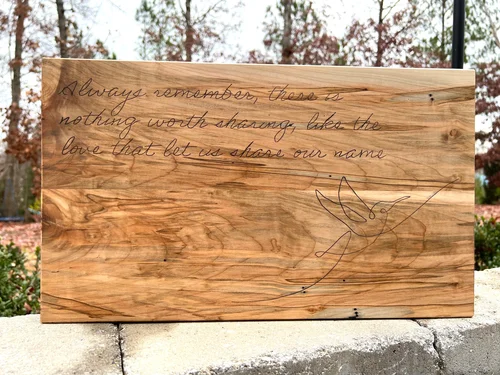 Always remember, there is
nothing worth sharing, like the
love that let us share our name